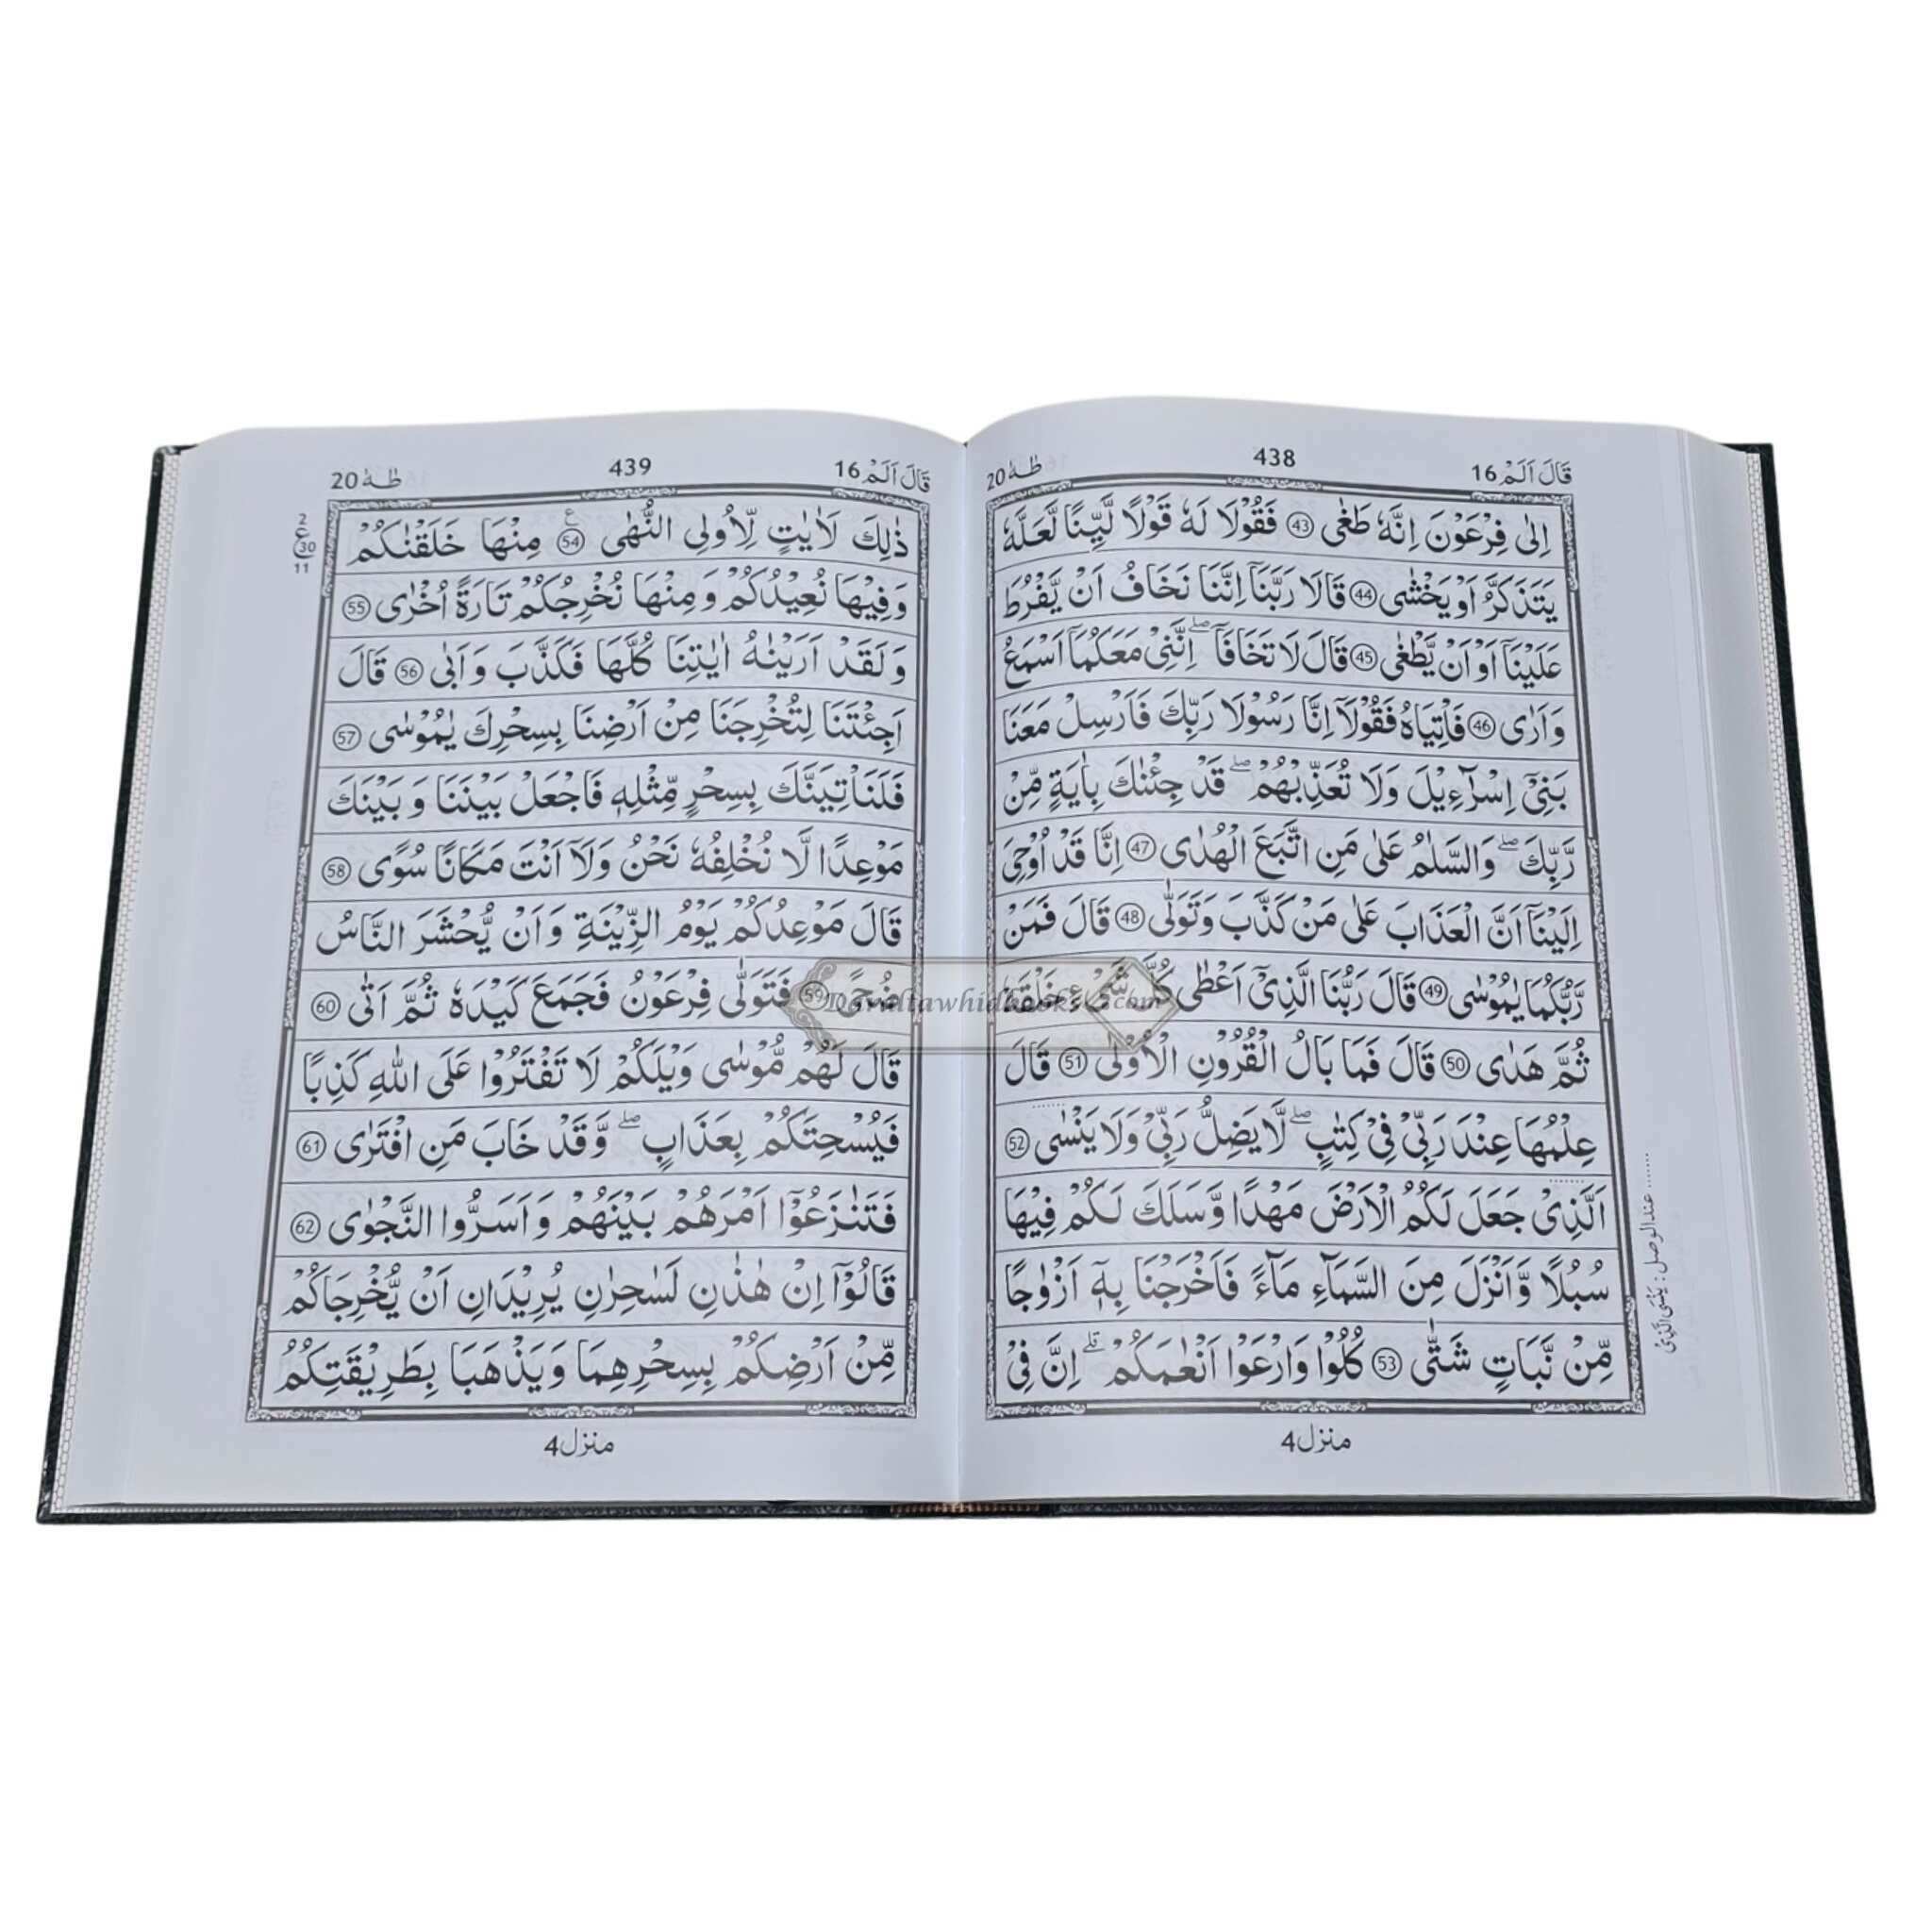 قَالَ اَلَمْ 16
438
طٰهٰ 20
اِلٰى فِرْعَوْنَ اِنَّهٗ طَغٰى 43 فَقُوْلَا لَهٗ قَوْلًا لَّيِّنًا لَّعَلَّهٗ
يَتَذَكَّرُ اَوْ يَخْشٰى 44 قَالَا رَبَّنَآ اِنَّنَا نَخَافُ اَنْ يَّفْرُطَ
عَلَيْنَآ اَوْ اَنْ يَّطْغٰى 45 قَالَ لَا تَخَافَآ ۖ اِنَّنِيْ مَعَكُمَآ اَسْمَعُ
وَاَرٰى 46 فَاْتِيَاهُ فَقُوْلَآ اِنَّا رَسُوْلَا رَبِّكَ فَاَرْسِلْ مَعَنَا
بَنِيْٓ اِسْرَآءِيْلَ وَلَا تُعَذِّبْهُمْ ۖ قَدْ جِئْنٰكَ بِاٰيَةٍ مِّنْ
رَّبِّكَ ۖ وَالسَّلٰمُ عَلٰى مَنِ اتَّبَعَ الْهُدٰى 47 اِنَّا قَدْ اُوْحِيَ
اِلَيْنَآ اَنَّ الْعَذَابَ عَلٰى مَنْ كَذَّبَ وَتَوَلّٰى 48 قَالَ فَمَنْ
رَّبُّكُمَا يٰمُوْسٰى 49 قَالَ رَبُّنَا الَّذِيْٓ اَعْطٰى كُلَّ شَيْءٍ خَلْقَهٗ
ثُمَّ هَدٰى 50 قَالَ فَمَا بَالُ الْقُرُوْنِ الْاُوْلٰى 51 قَالَ
عِلْمُهَا عِنْدَ رَبِّيْ فِيْ كِتٰبٍ ۖ لَا يَضِلُّ رَبِّيْ وَلَا يَنْسٰى 52
اَلَّذِيْ جَعَلَ لَكُمُ الْاَرْضَ مَهْدًا وَّسَلَكَ لَكُمْ فِيْهَا
سُبُلًا وَّاَنْزَلَ مِنَ السَّمَآءِ مَآءً فَاَخْرَجْنَا بِهٖٓ اَزْوٰجًا
مِّنْ نَّبَاتٍ شَتّٰى 53 كُلُوْا وَارْعَوْا اَنْعٰمَكُمْ ۗ اِنَّ فِيْ
منزل 4
عند الوصل : يَنْسَى الَّذِيْ
قَالَ اَلَمْ 16
439
طٰهٰ 20
ذٰلِكَ لَاٰيٰتٍ لِّاُولِى النُّهٰى 54 مِنْهَا خَلَقْنٰكُمْ
وَفِيْهَا نُعِيْدُكُمْ وَمِنْهَا نُخْرِجُكُمْ تَارَةً اُخْرٰى 55
وَلَقَدْ اَرَيْنٰهُ اٰيٰتِنَا كُلَّهَا فَكَذَّبَ وَاَبٰى 56 قَالَ
اَجِئْتَنَا لِتُخْرِجَنَا مِنْ اَرْضِنَا بِسِحْرِكَ يٰمُوْسٰى 57
فَلَنَاْتِيَنَّكَ بِسِحْرٍ مِّثْلِهٖ فَاجْعَلْ بَيْنَنَا وَبَيْنَكَ
مَوْعِدًا لَّا نُخْلِفُهٗ نَحْنُ وَلَآ اَنْتَ مَكَانًا سُوًى 58
قَالَ مَوْعِدُكُمْ يَوْمُ الزِّيْنَةِ وَاَنْ يُّحْشَرَ النَّاسُ
ضُحًى 59 فَتَوَلّٰى فِرْعَوْنُ فَجَمَعَ كَيْدَهٗ ثُمَّ اَتٰى 60
قَالَ لَهُمْ مُّوْسٰى وَيْلَكُمْ لَا تَفْتَرُوْا عَلَى اللّٰهِ كَذِبًا
فَيُسْحِتَكُمْ بِعَذَابٍ ۖ وَّقَدْ خَابَ مَنِ افْتَرٰى 61
فَتَنٰزَعُوْٓا اَمْرَهُمْ بَيْنَهُمْ وَاَسَرُّوا النَّجْوٰى 62
قَالُوْٓا اِنْ هٰذٰنِ لَسٰحِرٰنِ يُرِيْدَانِ اَنْ يُّخْرِجَاكُمْ
مِّنْ اَرْضِكُمْ بِسِحْرِهِمَا وَيَذْهَبَا بِطَرِيْقَتِكُمُ
منزل 4
2
ع
30
11
Daraltawhidbooks.com